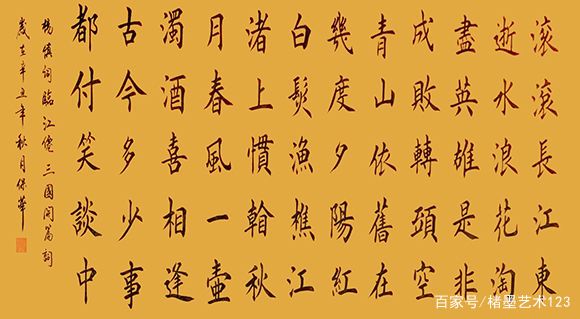 滚滚長江東
逝水浪花淘
盡英雄是非
成敗轉頭空
青山依舊在
幾度夕陽紅
白髮漁樵江
渚上慣翰秋
月春風一壺
濁酒喜相逢
古今多少事
都付笑談中
楊慎詞臨江僊三國開篇詞
歲在辛丑年秋月保華
百家号/楮墨艺术123